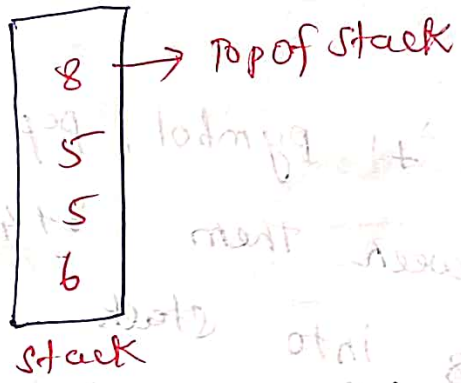 8 → Top of Stack
5
5
6
Stack